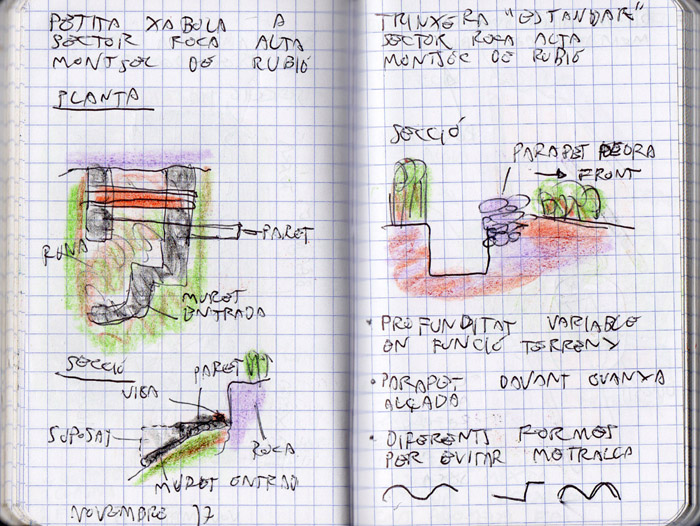 PETITA XABOLA A
SECTOR ROCA ALTA
MONTSEC DE RUBIÓ
PLANTA
RUNA
PARET
MURET
ENTRADA
SECCIÓ
PARET
VIGA
SUPOSAT
ROCA
MURET ENTRAD
NOVEMBRE 17
TRINXERA "ESTANDAR"
SECTOR ROCA ALTA
MONTSEC DE RUBIÓ
SECCIÓ
PARAPET PEDRA
FRONT
• PROFUNDITAT VARIABLE
EN FUNCIÓ TERRENY
• PARAPET DAVANT
ALÇADA
• DIFERENTS FORMES
PER EVITAR METRALLA